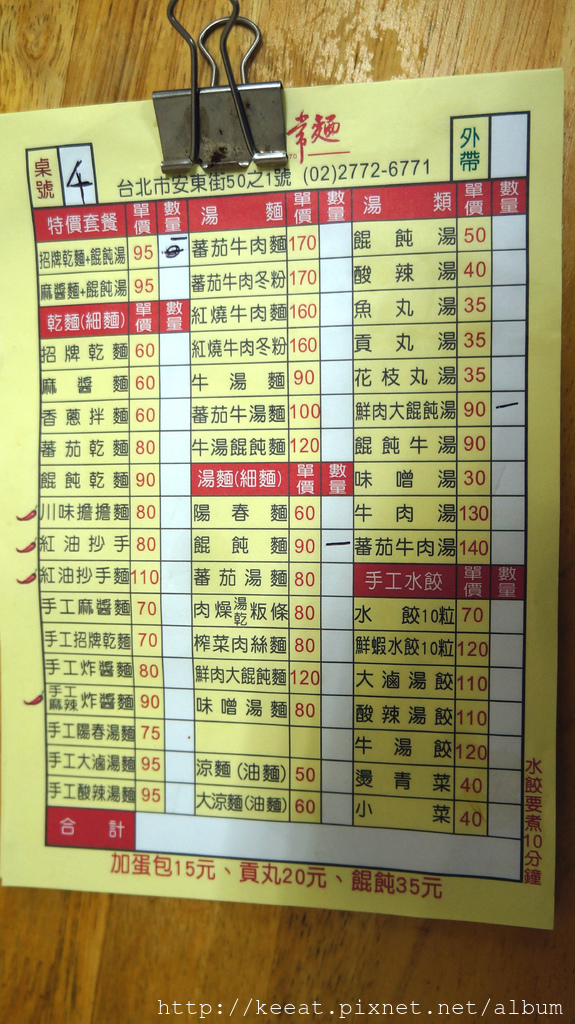 常麵
桌號 4
台北市安東街50之1號 (02)2772-6771
外帶
特價套餐 單價 數量
招牌乾麵+餛飩湯 95
麻醬麵+餛飩湯 95
乾麵(細麵) 單價 數量
招牌乾麵 60
麻醬麵 60
香蔥拌麵 60
蕃茄乾麵 80
餛飩乾麵 90
川味擔擔麵 80
紅油抄手 80
紅油抄手麵 110
手工麻醬麵 70
手工招牌乾麵 70
手工炸醬麵 80
手工麻辣炸醬麵 90
手工陽春湯麵 75
手工大滷湯麵 95
手工酸辣湯麵 95
合計
湯麵 單價 數量
蕃茄牛肉麵 170
蕃茄牛肉冬粉 170
紅燒牛肉麵 160
紅燒牛肉冬粉 160
牛湯麵 90
蕃茄牛湯麵 100
牛湯餛飩麵 120
湯麵(細麵) 單價 數量
陽春麵 60
餛飩麵 90 一
蕃茄湯麵 80
肉燥湯乾粄條 80
榨菜肉絲麵 80
鮮肉大餛飩麵 120
味噌湯麵 80
涼麵(油麵) 50
大涼麵(油麵) 60
湯類 單價 數量
餛飩湯 50
酸辣湯 40
魚丸湯 35
貢丸湯 35
花枝丸湯 35
鮮肉大餛飩湯 90 一
餛飩牛湯 90
味噌湯 30
牛肉湯 130
蕃茄牛肉湯 140
手工水餃 單價 數量
水餃10粒 70
鮮蝦水餃10粒 120
大滷湯餃 110
酸辣湯餃 110
牛湯餃 120
燙青菜 40
小菜 40
水餃要煮10分鐘
加蛋包15元、貢丸20元、餛飩35元
http://keeat.pixnet.net/album